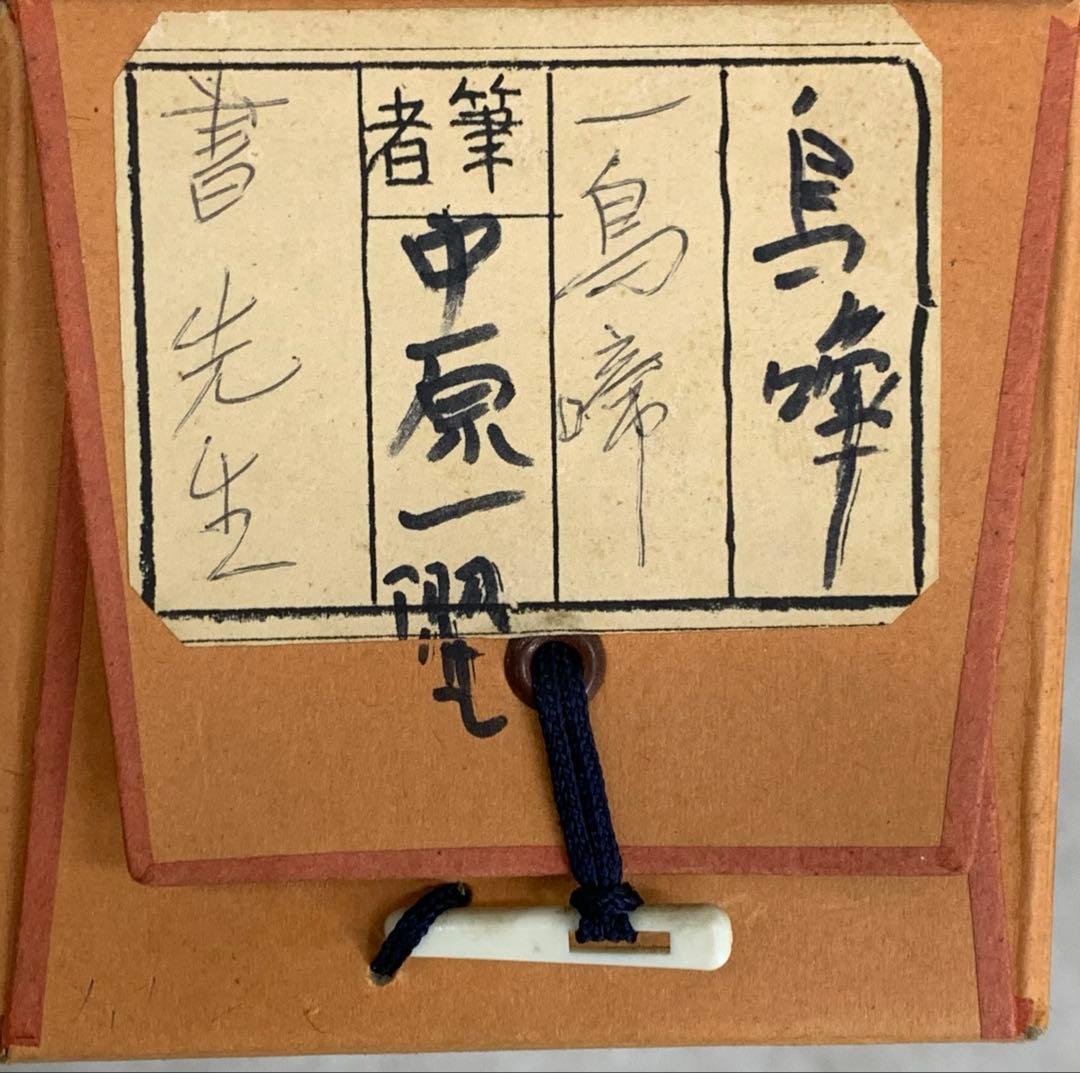 鳥啼
一鳥啼
筆者
中原一耀
書先生